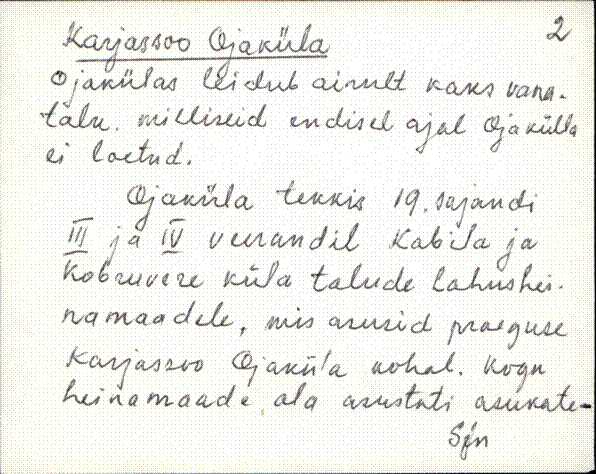 2
Karjassoo Ojaküla
Ojakülas leidub ainult kaks vana-
talu, milliseid endisel ajal Ojakülla
ei loetud.
Ojaküla tekkis 19. sajandi
III ja IV veerandil Kabila ja
Kobruvere küla talude lahushei-
namaadele, mis asusid praeguse
Karjassoo Ojaküla kohal. Kogu
heinamaade ala asustati asukate-